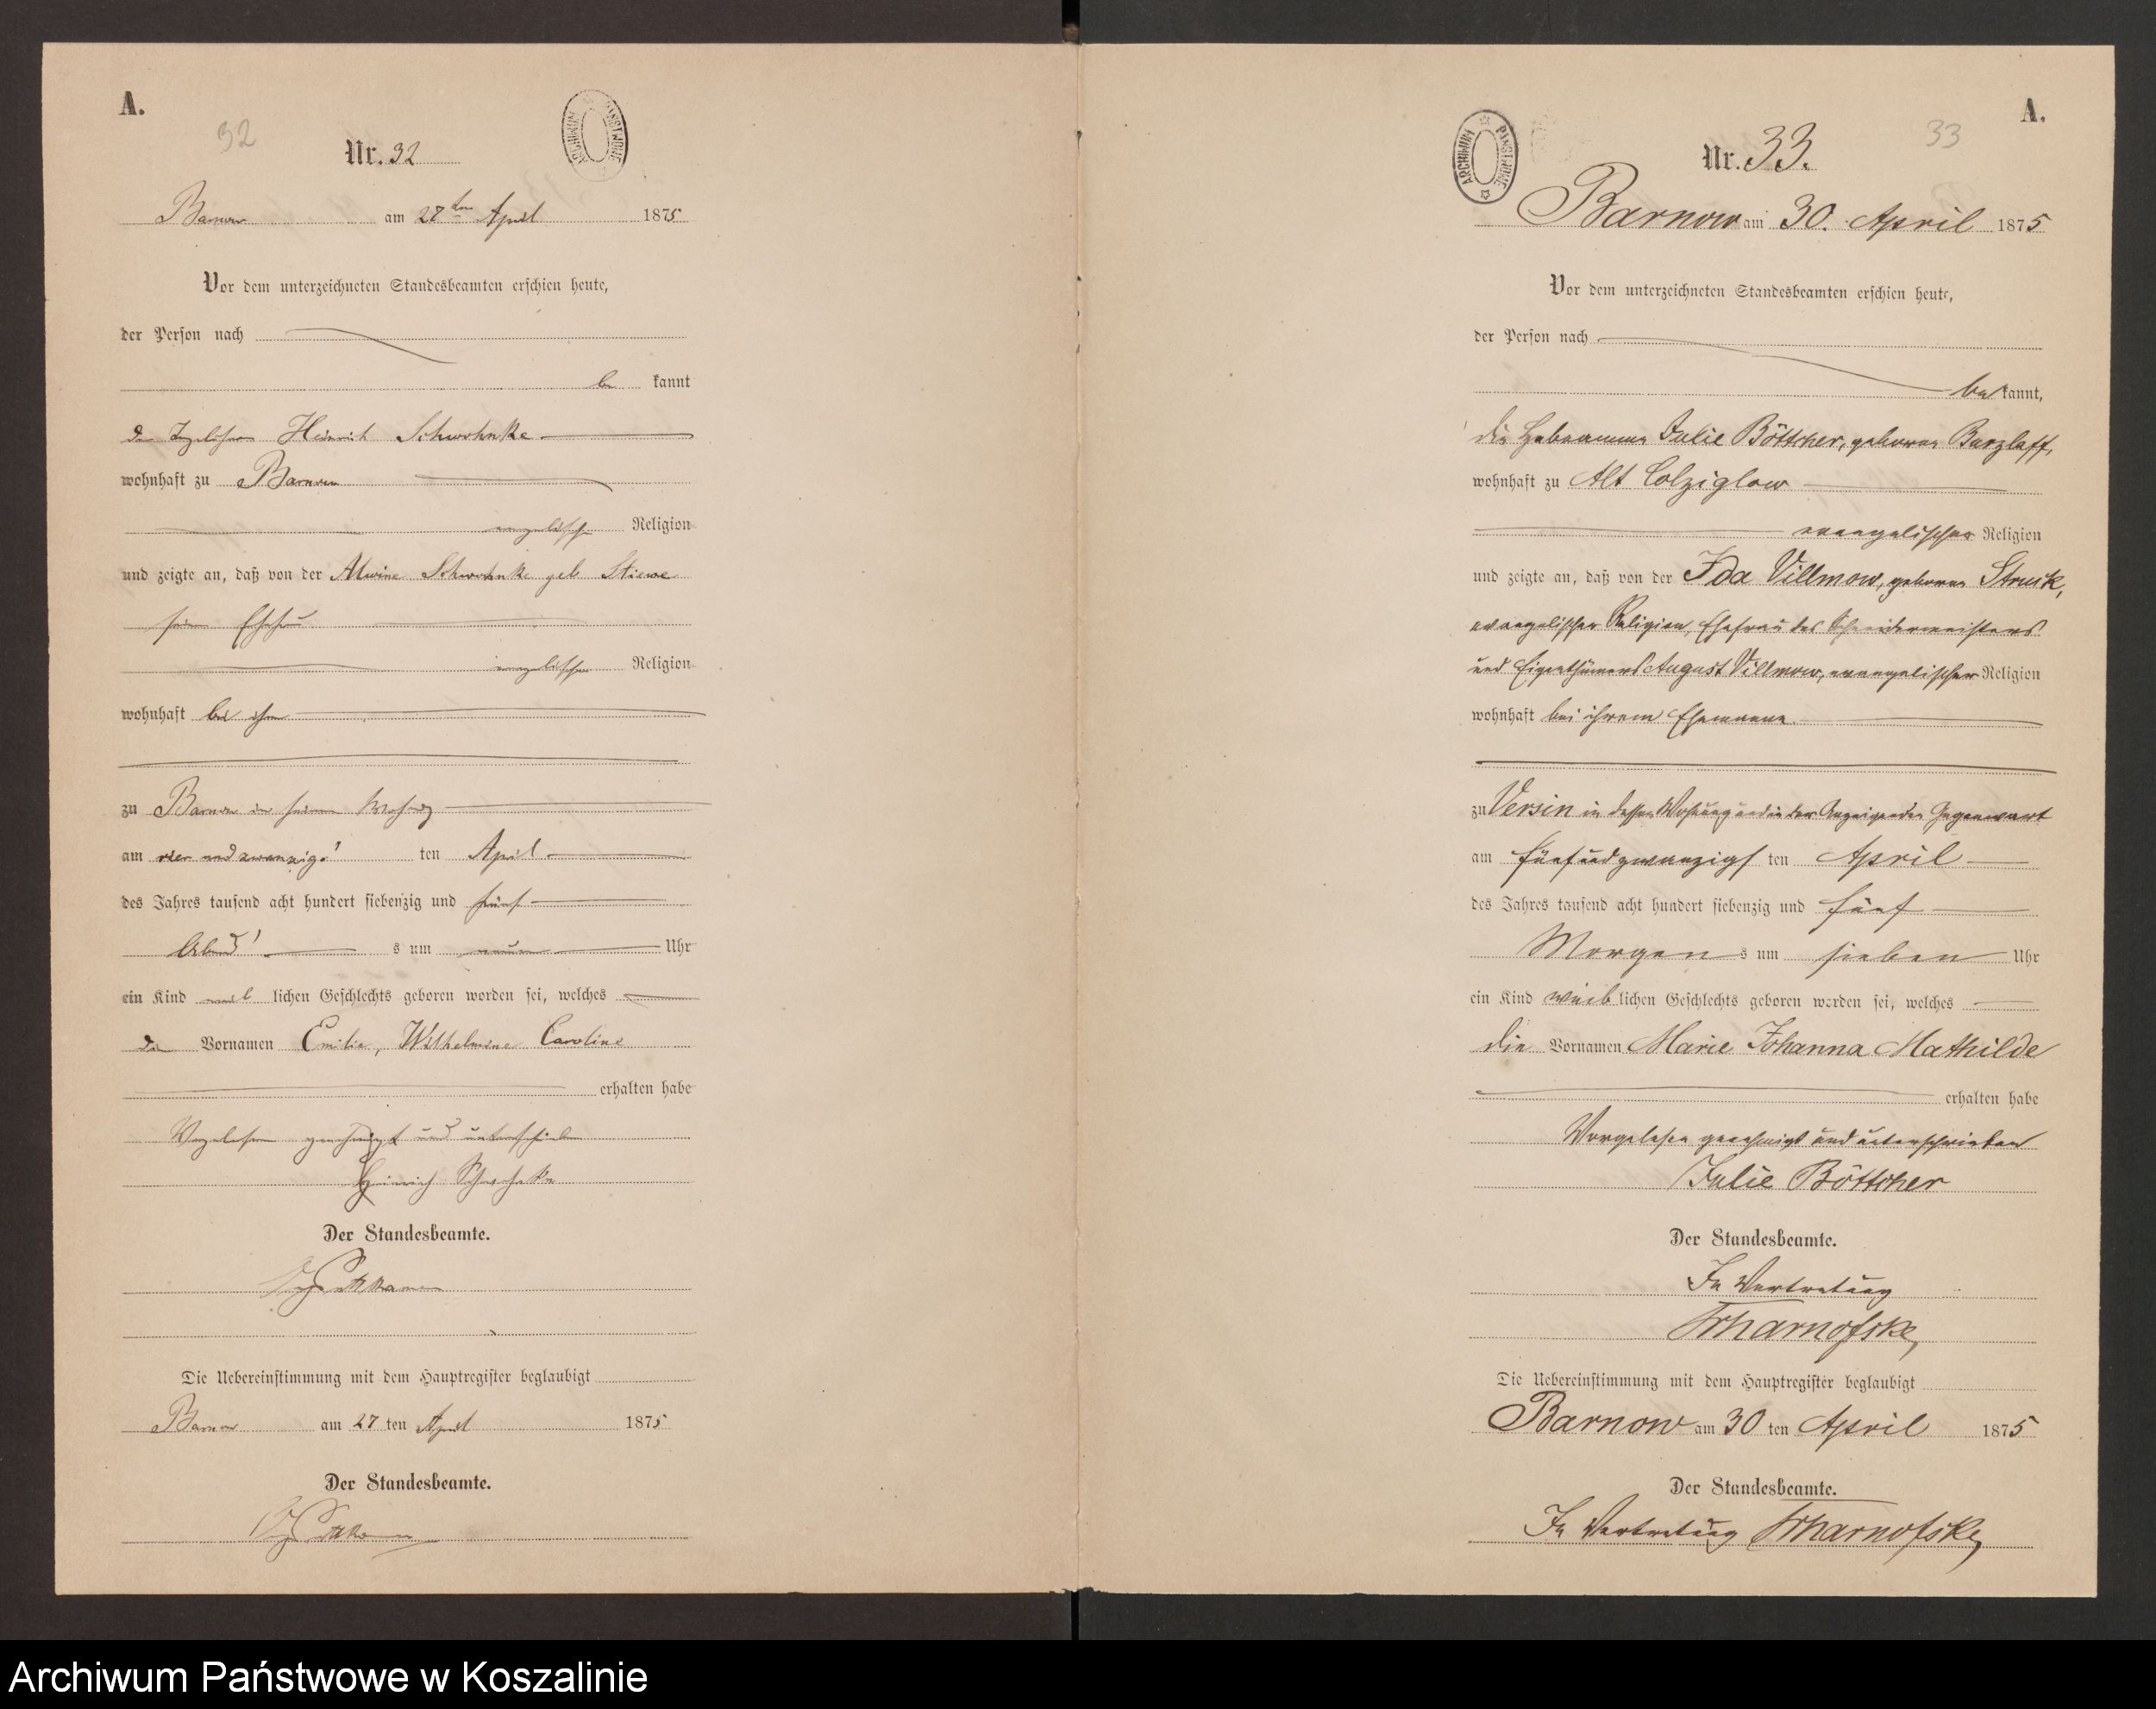 A.
32
Nr. 32
ARCHIWUM PAŃSTWOWE
Barnow am 27ten April 1875
Vor dem unterzeichneten Standesbeamten erschien heute,
der Person nach
be kannt
der Tagelöhner Heinrich Schwohnke
wohnhaft zu Barnow
evangelischer Religion
und zeigte an, daß von der Alwine Schwohnke geb Stiewe
seiner Ehefrau
evangelischer Religion
wohnhaft bei ihm
zu Barnow in seiner Wohnung
am vier und zwanzigs ten April
des Jahres tausend acht hundert siebenzig und fünf
Abend s um neun Uhr
ein Kind lichen Geschlechts geboren worden sei, welches
die Vornamen Emilie, Wilhelmine Caroline
erhalten habe
Vorgelesen genehmigt und unterschrieben
Heinrich Schwohnke
Der Standesbeamte.
Die Uebereinstimmung mit dem Hauptregister beglaubigt
Barnow am 27 ten April 1875
Der Standesbeamte.
A.
33
Nr. 33.
ARCHIWUM PAŃSTWOWE
Barnow am 30. April 1875
Vor dem unterzeichneten Standesbeamten erschien heute,
der Person nach
be kannt,
die Hebeamme Julie Böttcher, geborne Barzlaff,
wohnhaft zu Alt Colziglow
evangelischer Religion
und zeigte an, daß von der Ida Villmow, geborne Struck,
evangelischer Religion, Ehefrau des Schneidermeisters
und Eigenthümers August Villmow, evangelischer Religion
wohnhaft bei ihrem Ehemanne
zu Versin in dessen Wohnung und in der Anzeigenden Gegenwart
am fünfundzwanzigs ten April
des Jahres tausend acht hundert siebenzig und fünf
Morgen s um sieben Uhr
ein Kind weib lichen Geschlechts geboren worden sei, welches
die Vornamen Marie Johanna Mathilde
erhalten habe
Vorgelesen genehmigt und unterschrieben
Julie Böttcher
Der Standesbeamte.
In Vertretung
Die Uebereinstimmung mit dem Hauptregister beglaubigt
Barnow am 30 ten April 1875
Der Standesbeamte.
In Vertretung
Archiwum Państwowe w Koszalinie